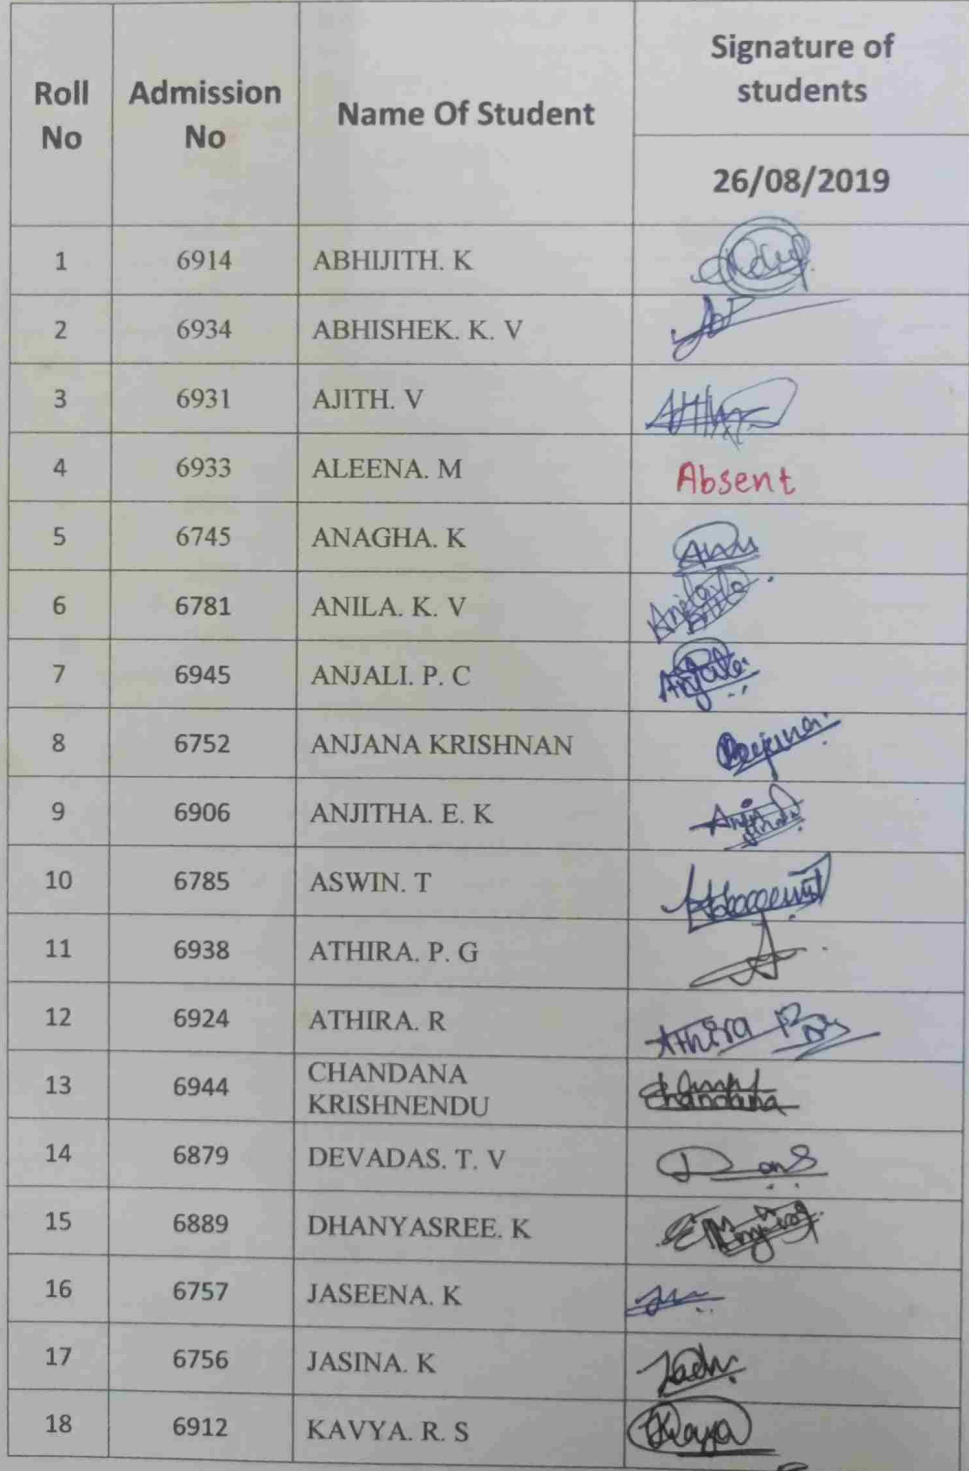 Roll No Admission No Name Of Student Signature of students
26/08/2019
1 6914 ABHIJITH. K
2 6934 ABHISHEK. K. V
3 6931 AJITH. V
4 6933 ALEENA. M Absent
5 6745 ANAGHA. K
6 6781 ANILA. K. V
7 6945 ANJALI. P. C
8 6752 ANJANA KRISHNAN
9 6906 ANJITHA. E. K
10 6785 ASWIN. T
11 6938 ATHIRA. P. G
12 6924 ATHIRA. R Athira
13 6944 CHANDANA KRISHNENDU Chandana
14 6879 DEVADAS. T. V
15 6889 DHANYASREE. K
16 6757 JASEENA. K
17 6756 JASINA. K
18 6912 KAVYA. R. S